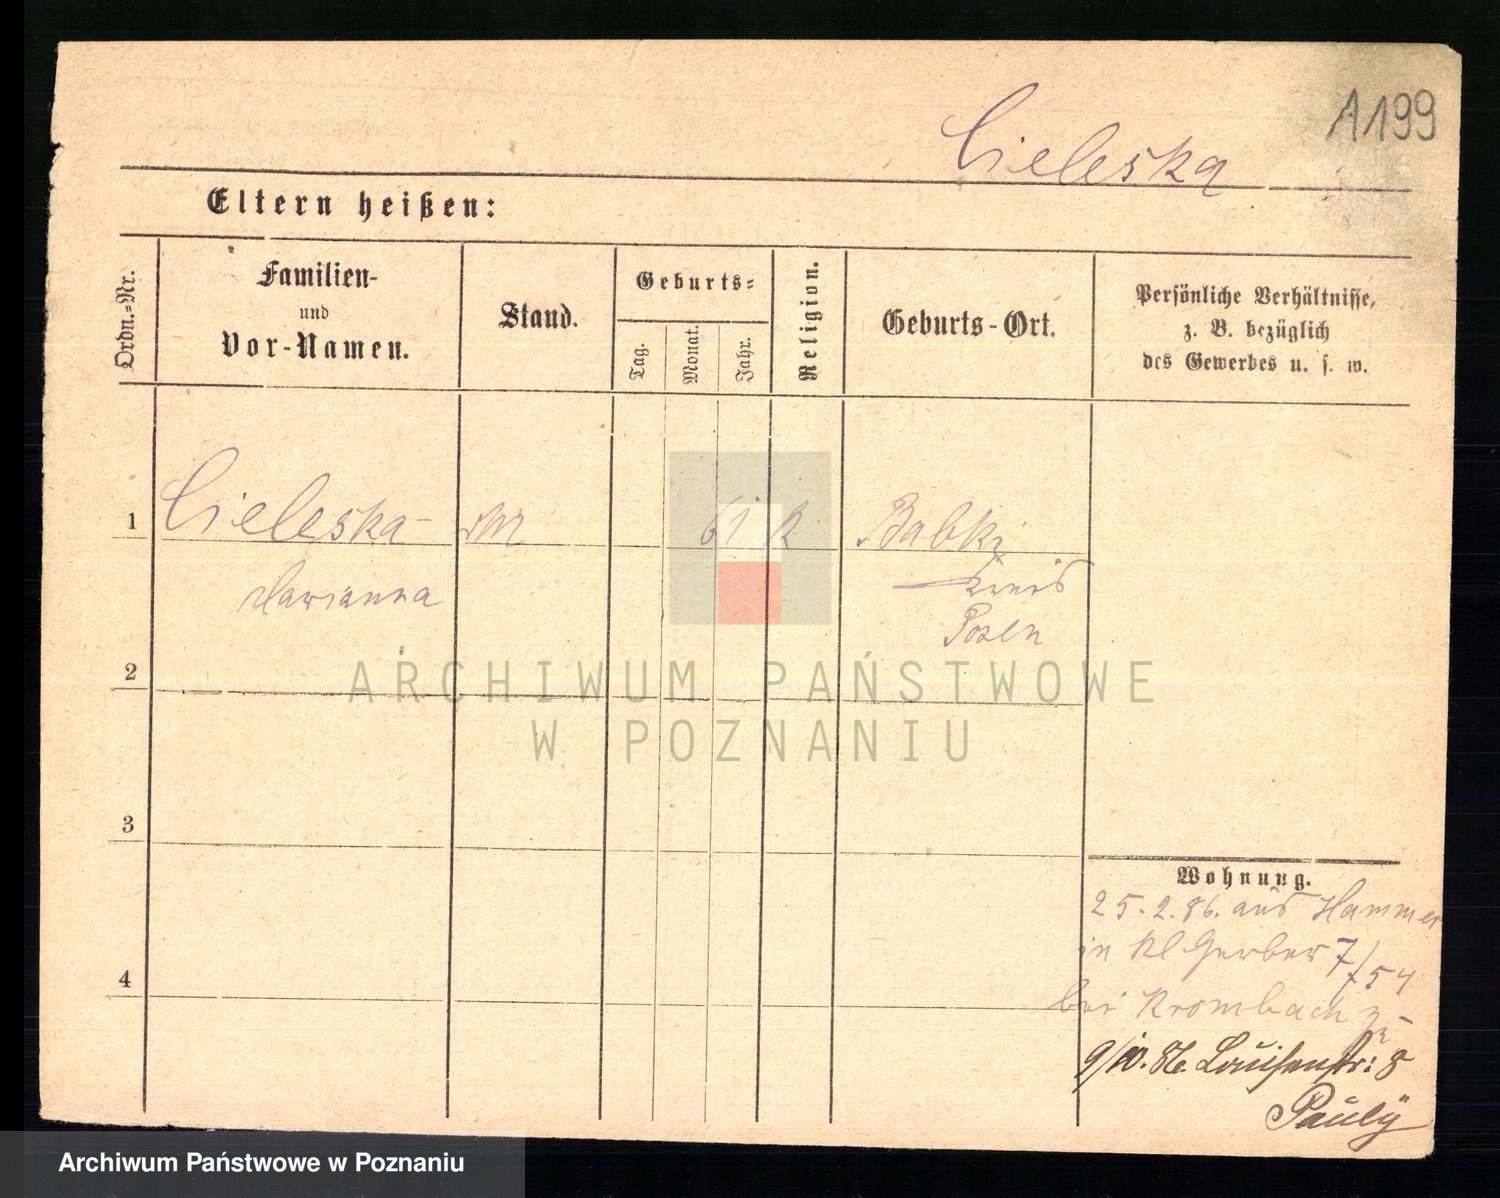 A199
Cieleska
Eltern heißen:
Ordn.-Nr.
Familien-
und
Vor-Namen.
Stand.
Geburts-
Tag.
Monat.
Jahr.
Religion.
Geburts-Ort.
Persönliche Verhältnisse,
z. B. bezüglich
des Gewerbes u. s. w.
1 Cieleska- 61 k Babki
Marianna
Kreis
Posen
2
ARCHIWUM PAŃSTWOWE
W POZNANIU
3
Wohnung.
25.2.86. aus Hammer
in Kl Gerber 7/54
4
bei Krombach
9/10. 86. Louisenstr: 8
Pauly
Archiwum Państwowe w Poznaniu